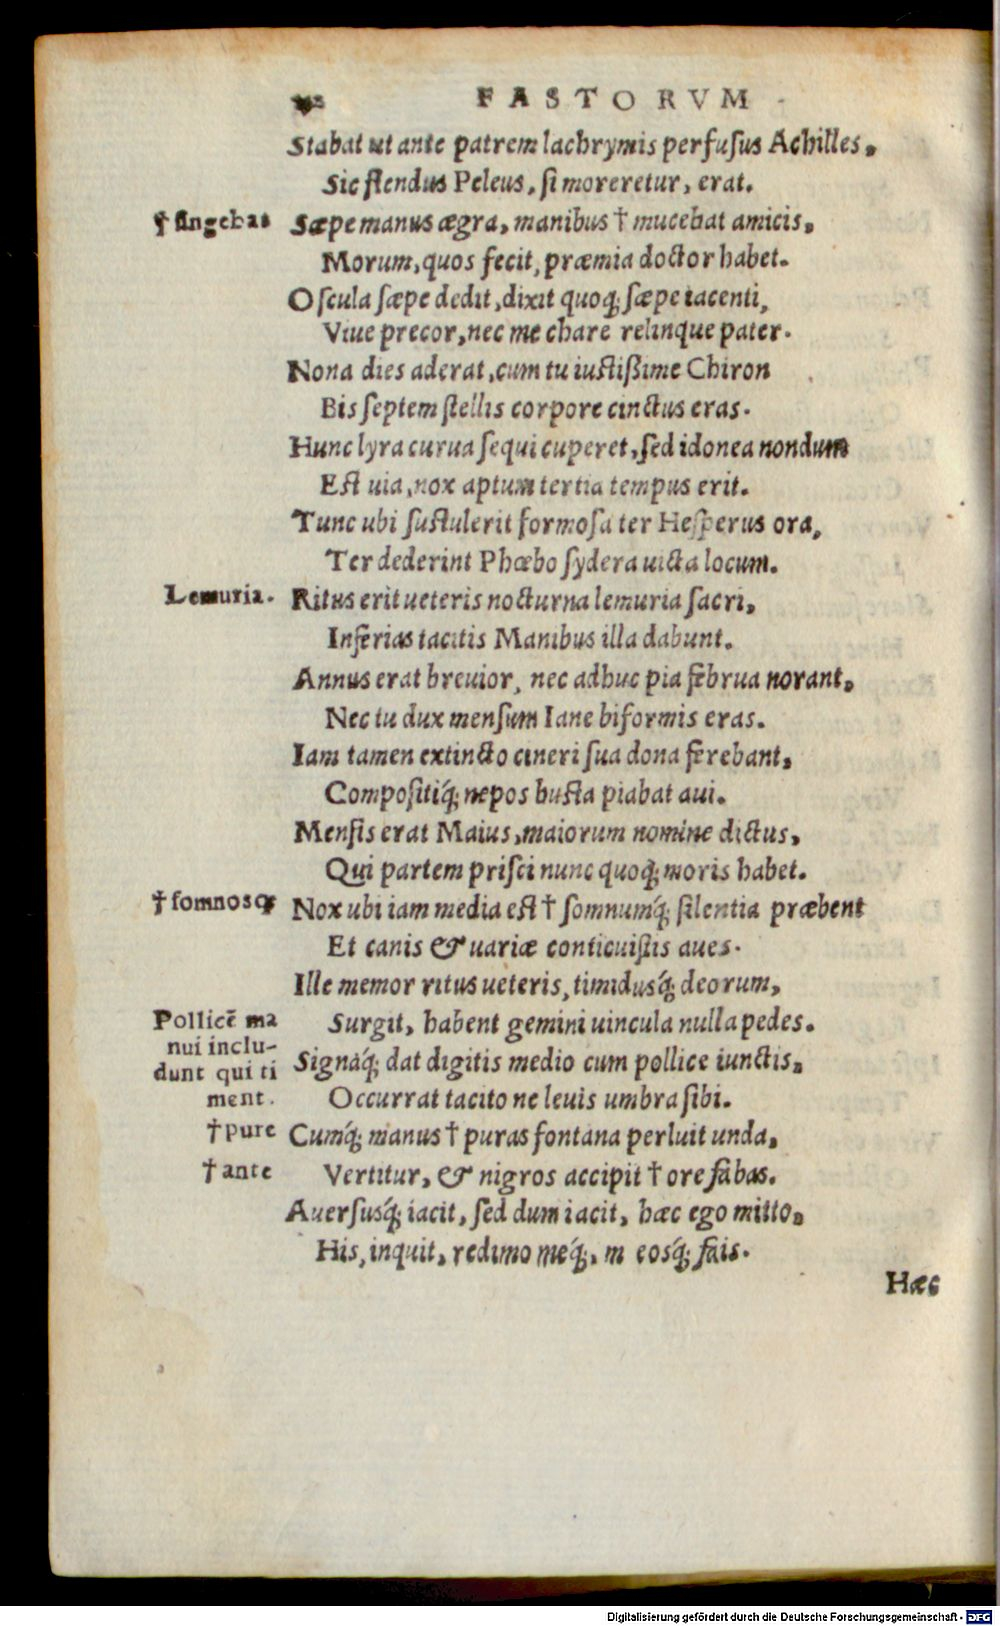 FASTORVM
Stabat ut ante patrem lachrymis perfusus Achilles,
Sic flendus Peleus, si moreretur, erat.
† fingebat
Sæpe manus ægra, manibus † mucebat amicis,
Morum, quos fecit, præmia doctor habet.
Oscula sæpe dedit, dixit quoq; sæpe iacenti,
Viue precor, nec me chare relinque pater.
Nona dies aderat, cum tu iustißime Chiron
Bis septem stellis corpore cinctus eras.
Hunc lyra curua sequi cuperet, sed idonea nondum
Est uia, nox aptum tertia tempus erit.
Tunc ubi sustulerit formosa ter Hesperus ora,
Ter dederint Phœbo sydera uicta locum.
Lemuria.
Ritus erit ueteris nocturna lemuria sacri,
Inferias tacitis Manibus illa dabunt.
Annus erat breuior, nec adhuc pia februa norant,
Nec tu dux mensum Iane biformis eras.
Iam tamen extincto cineri sua dona ferebant,
Compositiq́; nepos busta piabat aui.
Mensis erat Maius, maiorum nomine dictus,
Qui partem prisci nunc quoq; moris habet.
† somnosq;
Nox ubi iam media est † somnumq́; silentia præbent
Et canis & uariæ conticuistis aues.
Ille memor ritus ueteris, timidusq́; deorum,
Pollicē ma
nui inclu-
dunt qui ti
ment.
Surgit, habent gemini uincula nulla pedes.
Signaq́; dat digitis medio cum pollice iunctis,
Occurrat tacito ne leuis umbra sibi.
† pure
Cumq́; manus † puras fontana perluit unda,
† ante
Vertitur, & nigros accipit † ore fabas.
Auersusq́; iacit, sed dum iacit, hæc ego mitto,
His, inquit, redimo meq́;, m eosq́; fais.
Hæc
Digitalisierung gefördert durch die Deutsche Forschungsgemeinschaft - DFG